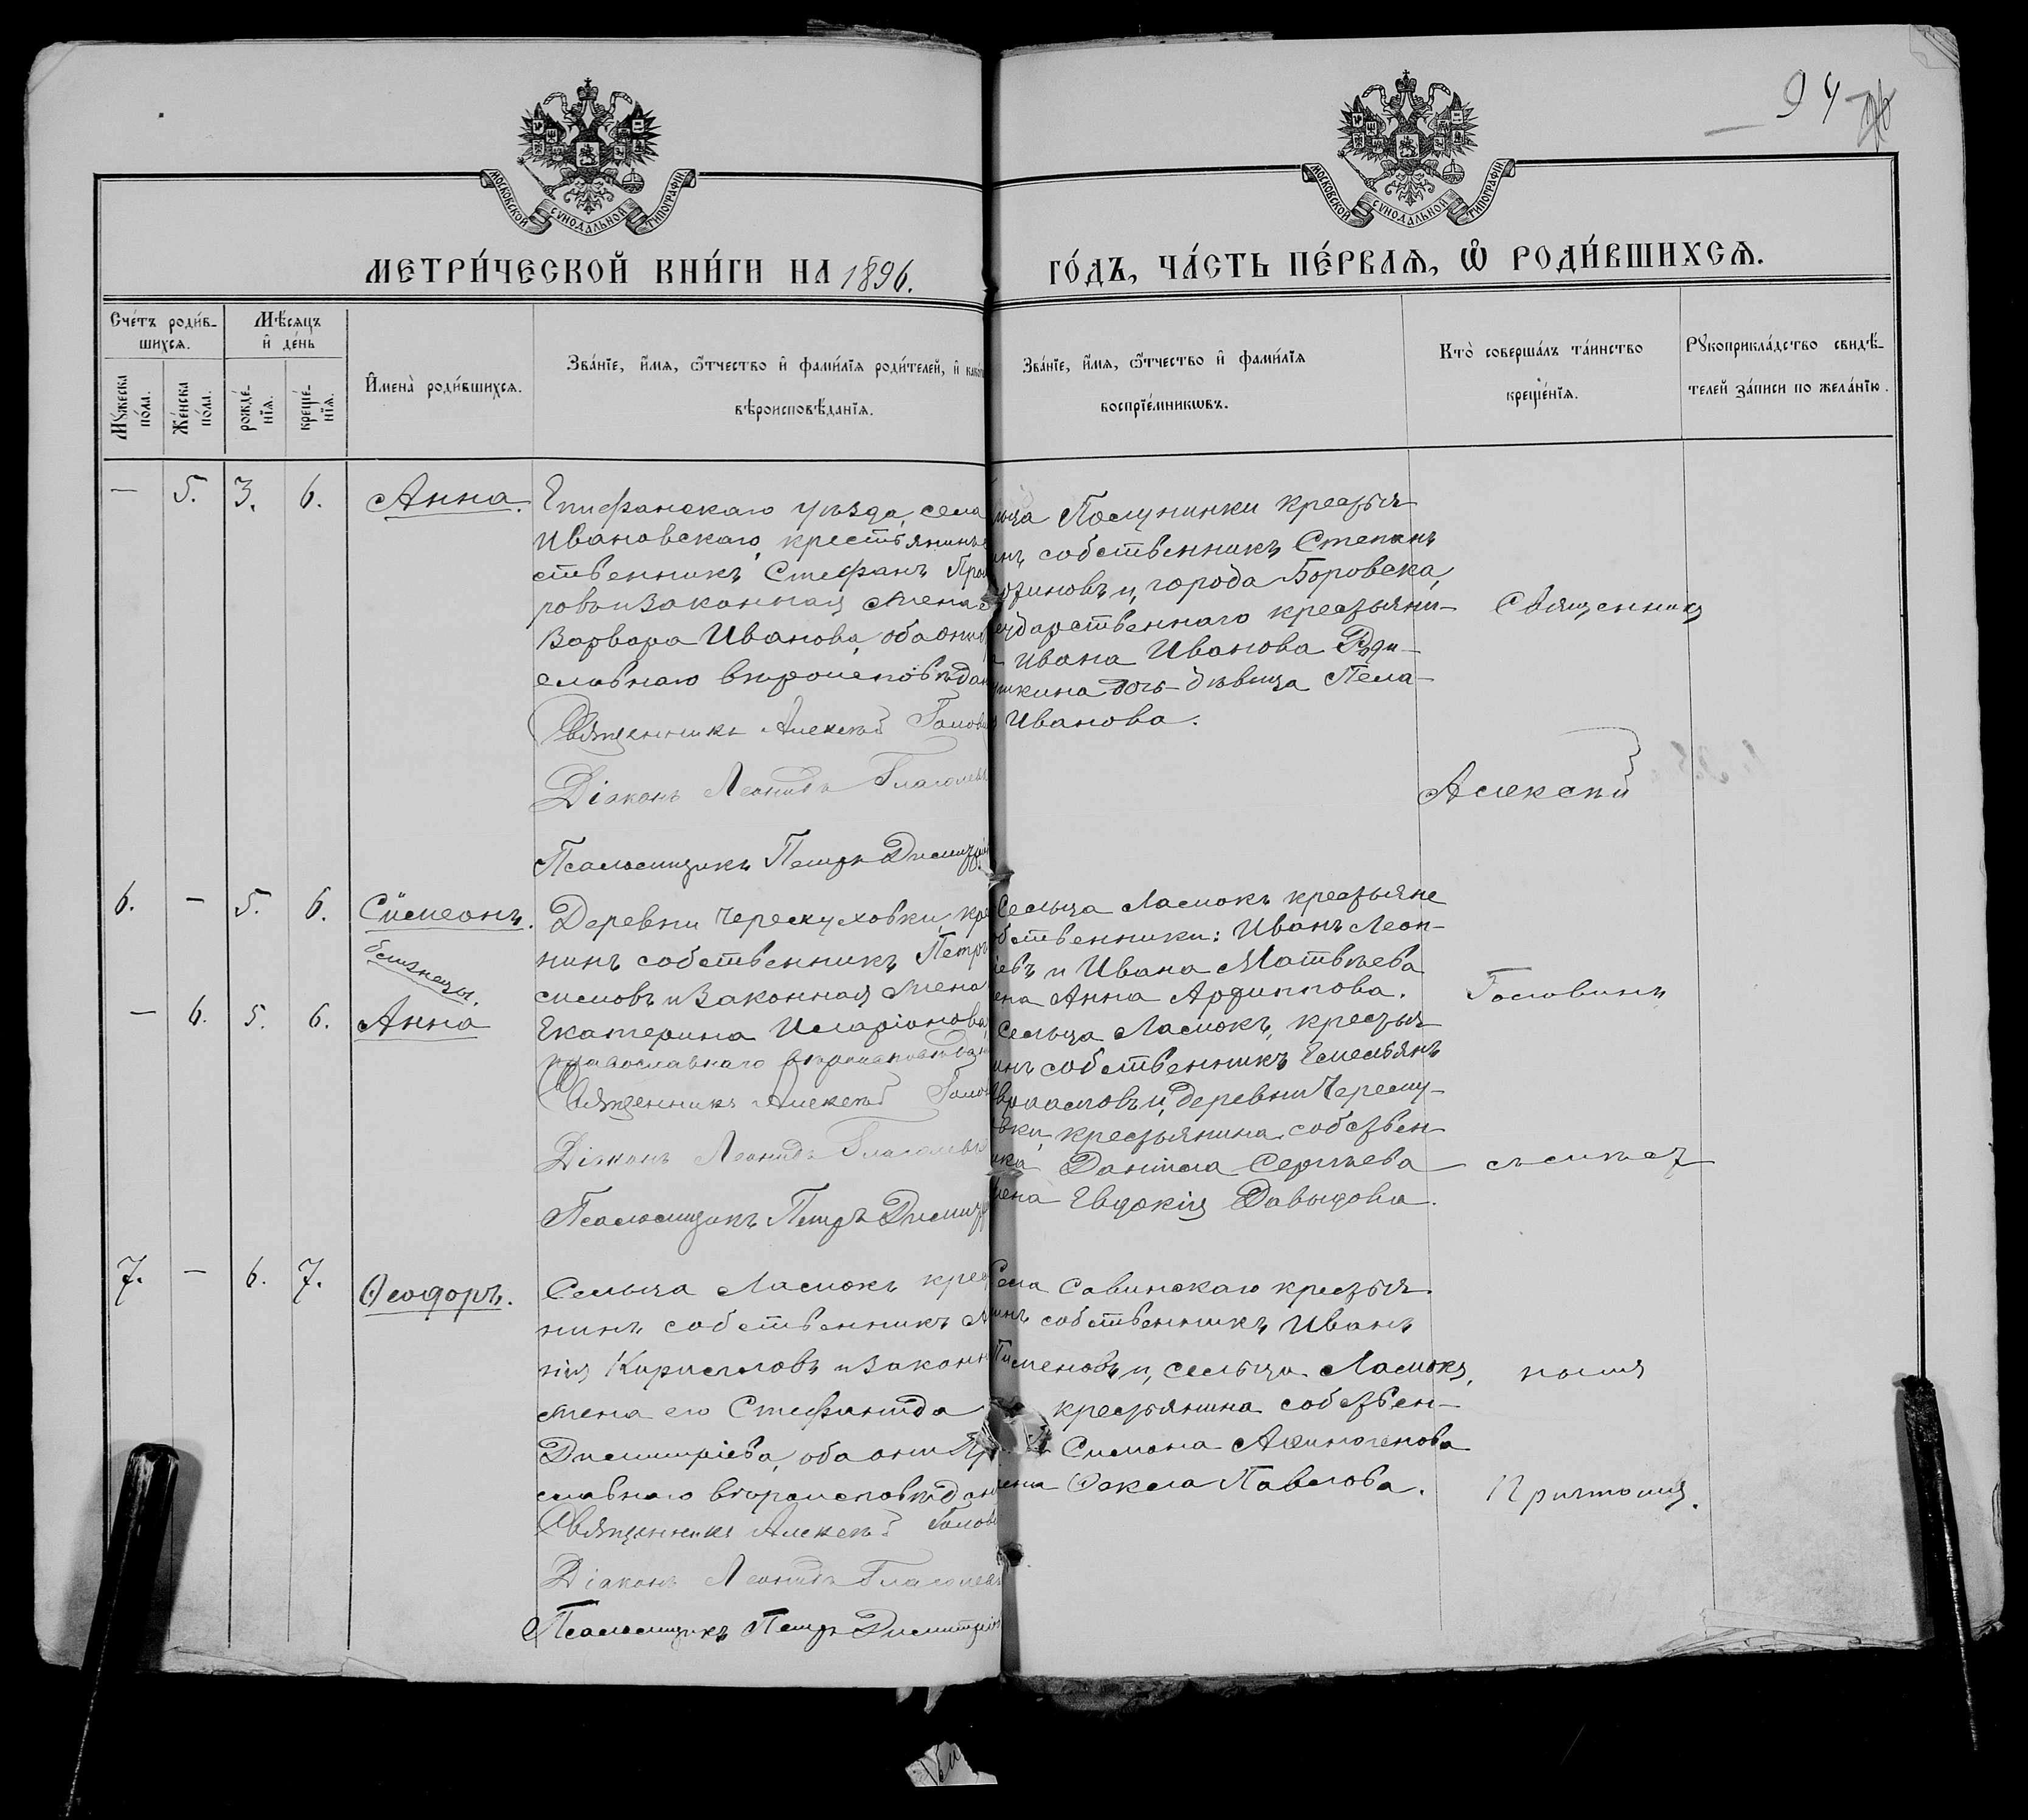 94
МОСКОВСКОЙ СУНОДАЛЬНОЙ ТИПОГРАФІИ
МОСКОВСКОЙ СУНОДАЛЬНОЙ ТИПОГРАФІИ
МЕТРИ́ЧЕСКОЙ КНИ́ГИ НА 1896.
ГО́ДЪ, ЧА́СТЬ ПЕ́РВАѦ, Ѡ҆ РОДИ́ВШИХСѦ.
Сче́тъ роди́в-
шихсѧ.
Мѣ́сѧцъ
и҆ де́нь
Мꙋ́жеска
по́ла.
Же́нска
по́ла.
рожде́-
нїѧ.
креще́-
нїѧ.
И҆мена̀ роди́вшихсѧ.
Зва́нїе, и҆́мѧ, ѻ҆́тчество и҆ фами́лїѧ роди́телей, и҆
вѣроисповѣ́данїѧ.
Зва́нїе, и҆́мѧ, ѻ҆́тчество и҆ фами́лїѧ
воспрїе́мникѡвъ.
Кто̀ соверша́лъ та́инство
креще́нїѧ.
Рꙋкоприкла́дство свидѣ́-
телей за́писи по жела́нїю.
— 5. 3. 6. Анна.
Епифанскаго уѣзда, села
Ивановскаго, крестьянинъ
ственникъ Стефанъ
ровъ и законная жена
Варвара Иванова, оба они
славнаго вѣроисповѣдан
Священникъ Алексѣй Голов
Діаконъ Леонидъ Глаголевъ
Псаломщикъ Петръ Димитрі
крестья-
инъ собственникъ Степанъ
и, города Боровска,
сударственнаго крестьяни-
Ивана Иванова
дочь-дѣвица Пела-
Иванова.
Священникъ
Алексѣй
6. — 5. 6. Сѵмеонъ.
близнецы.
— 6. 5. 6. Анна
Деревни Черемуховки, кре
нинъ собственникъ Петръ
симовъ и законная жена
Екатерина Иларіонова,
православнаго вѣроисповѣдан
Священникъ Алексѣй Голов
Діаконъ Леонидъ Глаголевъ
Псаломщикъ Петръ Димитр
Сельца Ламокъ крестьяне
бственники: Иванъ Леон-
евъ и Ивана Матвѣева
ена Анна Архиппова.
Сельца Ламокъ, крестья-
инъ собственникъ Емельянъ
врамовъ и, деревни Черему-
вки, крестьянина собствен-
ика Даніила Сергѣева
ена Евдокія Давыдова.
Головинъ
съ симъ
7. — 6. 7. Ѳеодоръ.
Сельца Ламокъ крес
нинъ собственникъ
нія Кирилловъ и законн
жена его Стефанида
Димитріева, оба они Пр
славнаго вѣроисповѣдан
Священникъ Алексѣй Голов
Діаконъ Леонидъ Глаголевъ
Псаломщикъ Петръ Димитрів
Села Савинскаго крестья-
инъ собственникъ Иванъ
Пименовъ и, сельца Ламокъ,
крестьянина собствен-
Симона Аѳиногенова
жена Ѳекла Павлова.
Причтомъ.